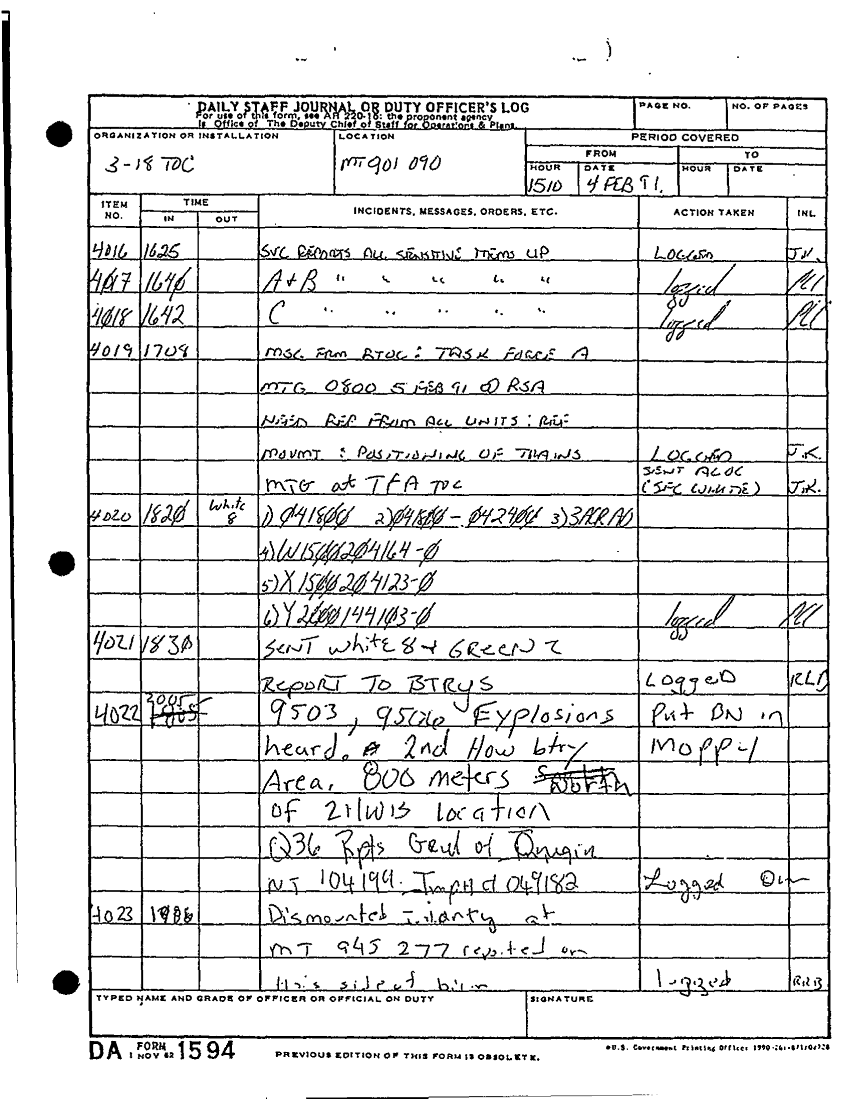 DAILY STAFF JOURNAL OR DUTY OFFICER'S LOG
For use of this form, see AR 220-15; the proponent agency
is Office of The Deputy Chief of Staff for Operations & Plans.
PAGE NO.
NO. OF PAGES
ORGANIZATION OR INSTALLATION
3-18 TOC
LOCATION
MT 901 090
PERIOD COVERED
FROM TO
HOUR DATE HOUR DATE
1510 4 FEB 91.
ITEM NO. TIME INCIDENTS, MESSAGES, ORDERS, ETC. ACTION TAKEN INL
IN OUT
4016 1625 SVC REPORTS ALL SENSITIVE ITEMS UP LOGGED
4017 1640 A+B " " " " logged
4018 1642 C " " " " logged
4019 1708 MSG FRM BTOC: TASK FORCE A
MTG 0800 5 FEB 91 @ RSA
NEED REP FROM ALL UNITS: REF
MOVMT & POSITIONING OF TRAINS LOGGED J.K.
MTG at TFA TOC SENT ALOC (SFC WHITE) J.K.
4020 1820 White 8 1) 041800 2) 041800-042400 3) 3ACR AO
4) W1500204164-0
5) X1500204123-0
6) Y2000144103-0 logged
4021 1830 SENT White 8 + GREEN 2
REPORT TO BTRYS LoggeD RLD
4022 2005 9503, 9506 Explosions Put BN in
heard. 2nd How btry MOPP-1
Area. 800 meters North
of 21/W13 location
Q36 Rpts Gend of Origin
NT 104199. Impact 049182 Logged
4023 Dismounted Infantry at
MT 945 277 reported on
this side of logged RRB
TYPED NAME AND GRADE OF OFFICER OR OFFICIAL ON DUTY
SIGNATURE
DA FORM 1 NOV 62 1594
PREVIOUS EDITION OF THIS FORM IS OBSOLETE.
U.S. Government Printing Office: 1990-261-871/20328